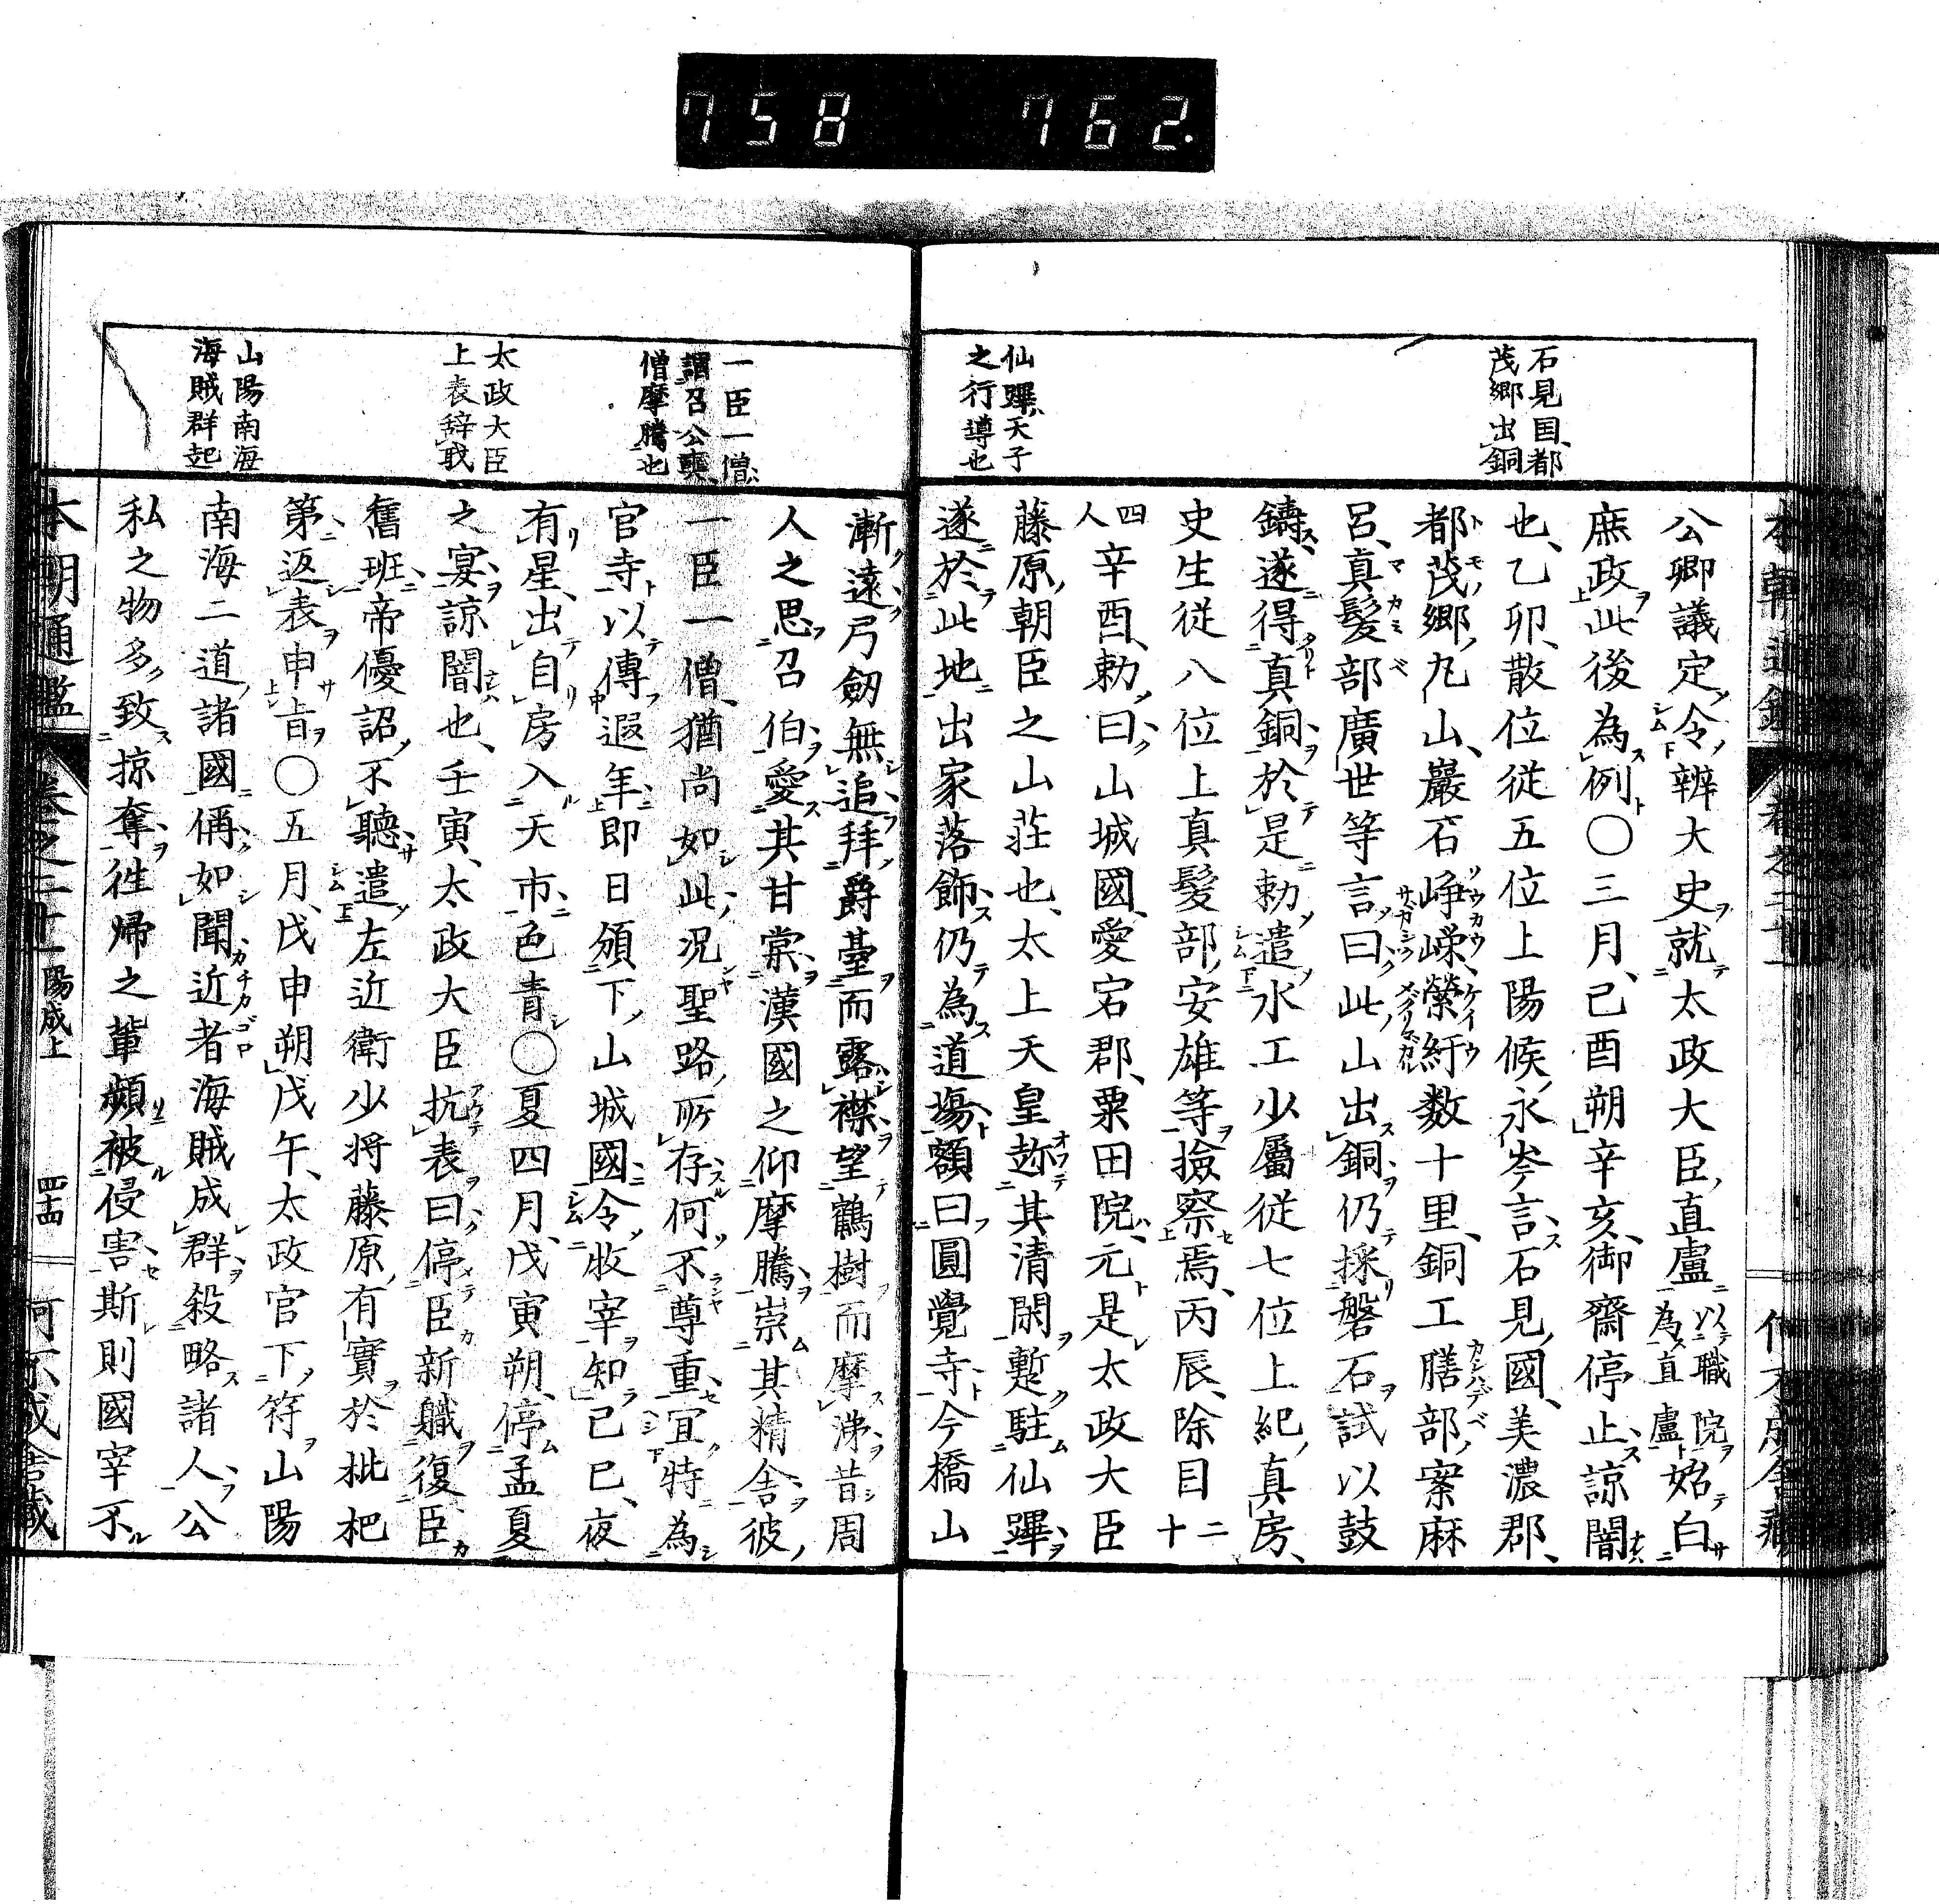 758 762.
石見国都
茂郷出銅
仙蹕天子
之行導也
公卿議定令辨大史就太政大臣直盧以職院為直盧始白
庶政此後為例〇三月己酉朔辛亥御齋停止諒闇
也乙卯散位従五位上陽候永岑言石見國美濃郡
都茂郷丸山巖石崢嶸縈紆数十里銅工膳部案麻
呂真髪部廣世等言曰此山出銅仍採磐石試以鼓
鑄遂得真銅於是勅遣水工少屬従七位上紀真房
史生従八位上真髪部安雄等撿察焉丙辰除目二十
四人辛酉勅曰山城國愛宕郡粟田院元是太政大臣
藤原朝臣之山荘也太上天皇赼其清閑蹔駐仙蹕
遂於此地出家落飾仍為道場額曰圓覺寺今橋山
一臣一僧
謂召公奭
僧摩騰也
太政大臣
上表辞职
山陽南海
海賊群起
漸遠弓劔無追拜爵臺而露襟望鶴樹而摩涕昔周
人之思召伯愛其甘棠漢國之仰摩騰崇其精舎彼
一臣一僧猶尚如此况聖路所存何不尊重宜特為
官寺以傳遐年即日頒下山城國令收宰知己巳夜
有星出自房入天市色青〇夏四月戊寅朔停孟夏
之宴諒闇也壬寅太政大臣抗表曰停臣新軄復臣
舊班帝優詔不聽遣左近衛少将藤原有實於枇杷
第返表申旨〇五月戊申朔戊午太政官下符山陽
南海二道諸國偁如聞近者海賊成群殺略諸人公
私之物多致掠奪徃帰之輩頻被侵害斯則國宰不
本朝通鑑 卷之二十一 陽成上 四十四